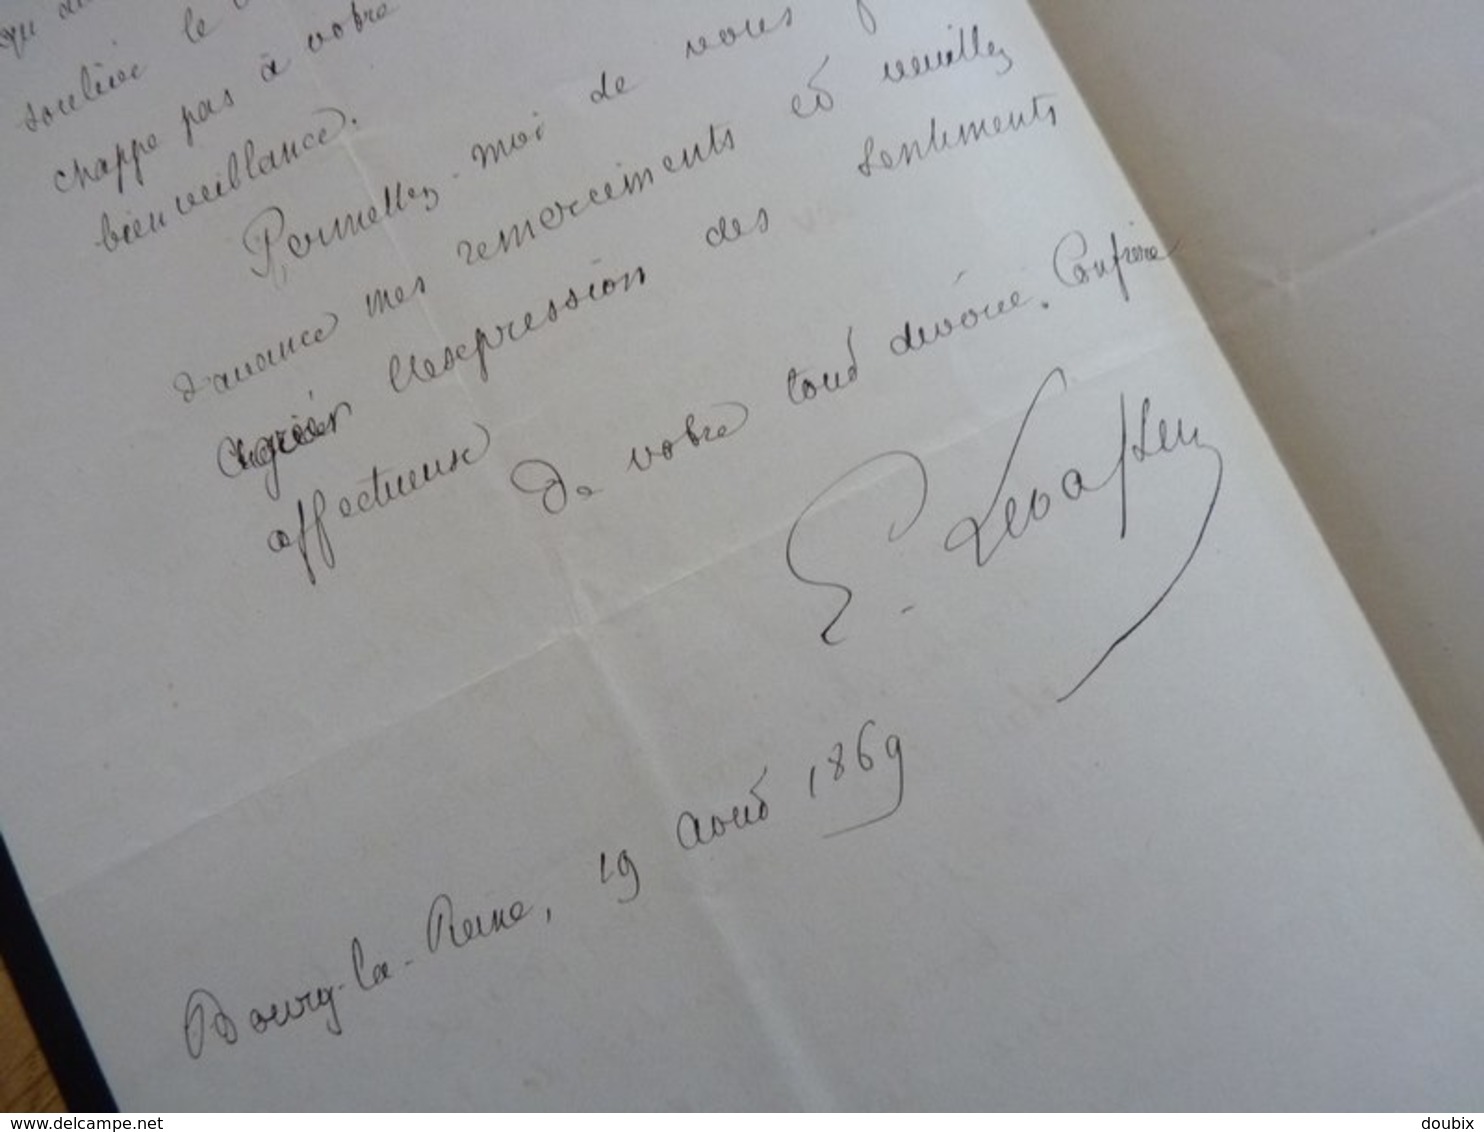 soulève le
chappe pas à votre
bienveillance.
Permettez-moi de vous
d'avance mes remerciements et veuillez
agréer l'expression des sentiments
affectueux
De votre tout dévoué Confrère
E. Levasseur
Bourg-la-Reine, 19 Août 1869
www.delcampe.net
doubix